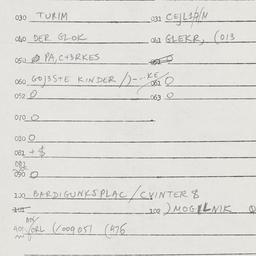 030 TURIM 031 CEJL
040 DER GLOK 041 GLEKR, (013
050 PA,C+3RKES
060 GOJ3STE KINDER /)--KE 061 0
052 0 063 0
070 0
080 0
081 + $
082
090 0
100 BARDIGUNKSPLAC / CVINTER $
101 102 ) MOGILNIK Q
401 /ORL (/009051 (476